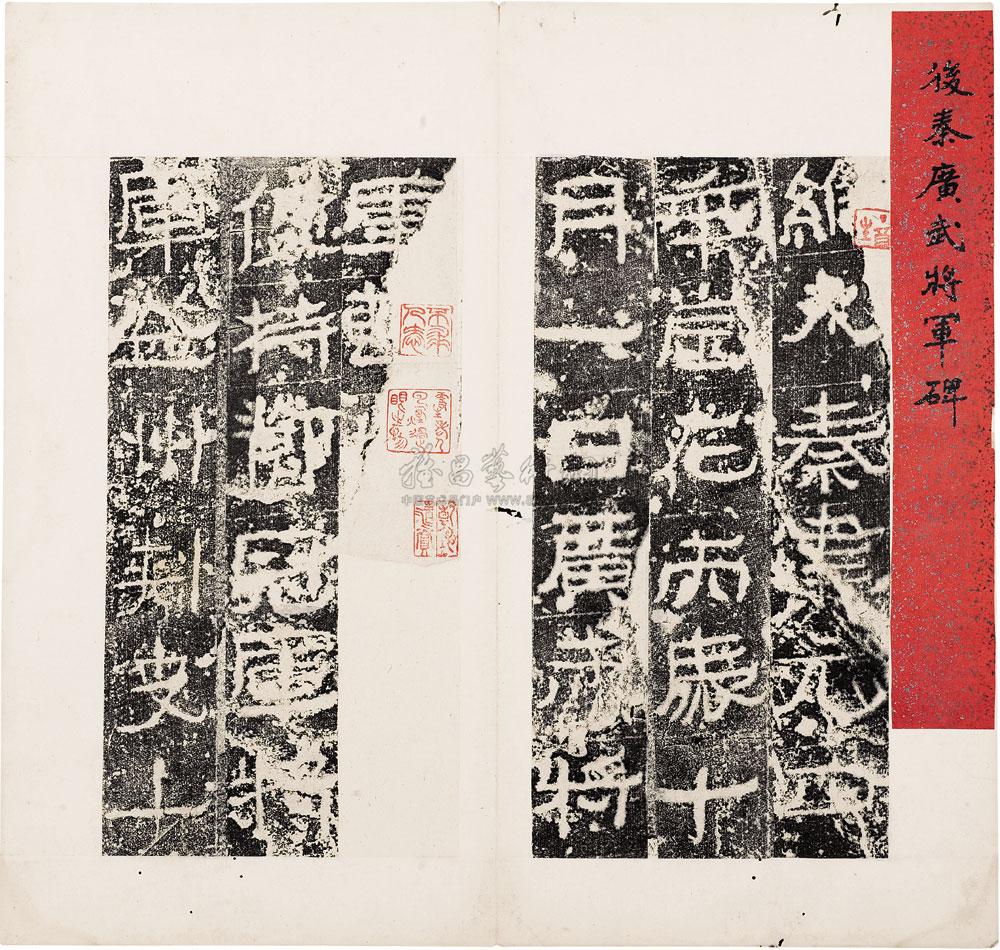 後秦廣武將軍碑
維大秦建元四
年歲在丙辰十
月一日廣武將
軍
使持節冠軍將
軍益州刺史上